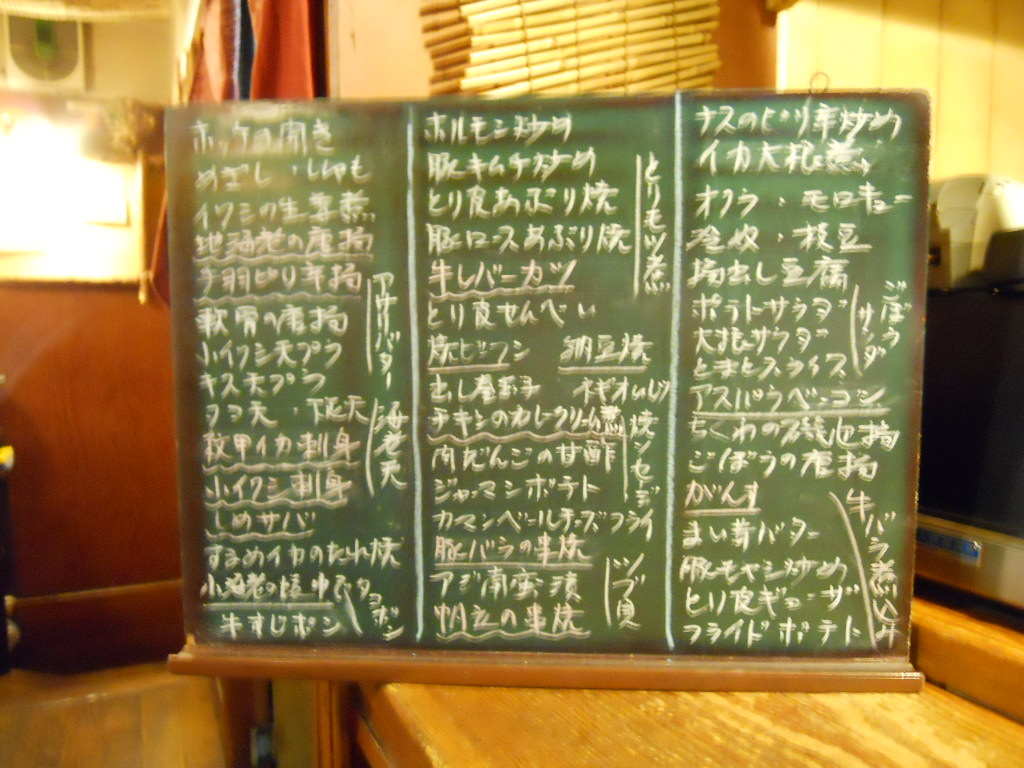 ホッケの開き
めざし・ししゃも
イワシの生姜煮
地海老の唐揚
手羽ピリ辛揚
軟骨の唐揚
小イワシ天プラ
キス天プラ
タコ天・下足天
紋甲イカ刺身
小イワシ刺身
しめサバ
するめイカのたれ焼
小海老の
牛すじポン
アサリバター
海老天
タコポン
ホルモン炒め
豚キムチ炒め
とり皮あぶり焼
豚ロースあぶり焼
牛レバーカツ
とり皮せんべい
焼ビーフン 納豆焼
出し巻玉子 ネギオムレツ
チキンのカレークリーム煮
肉だんごの甘酢
ジャーマンポテト
カマンベールチーズフライ
豚バラの串焼
アジ南蛮漬
帆立の串焼
とりモツ煮
焼ソーセージ
ツブ貝
ナスのピリ辛炒め
イカ大根煮
オクラ・モロキュー
冷奴・枝豆
揚出し豆腐
ポテトサラダ
大根サラダ
とまとスライス
アスパラベーコン
ちくわの磯辺揚
ごぼうの唐揚
がんす
まい茸バター
豚モヤシ炒め
とり皮ギョーザ
フライドポテト
ごぼうサラダ
牛バラ煮こみ